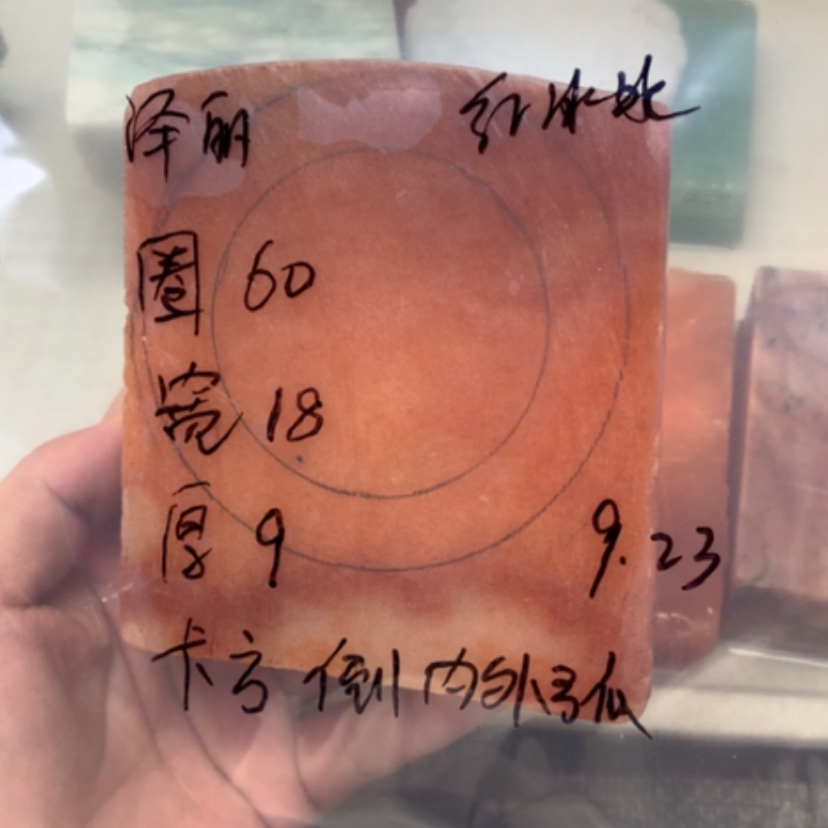 泽丽 红冰地
圈 60
宽 18
厚 9 9.23
卡方 倒内外弓弧